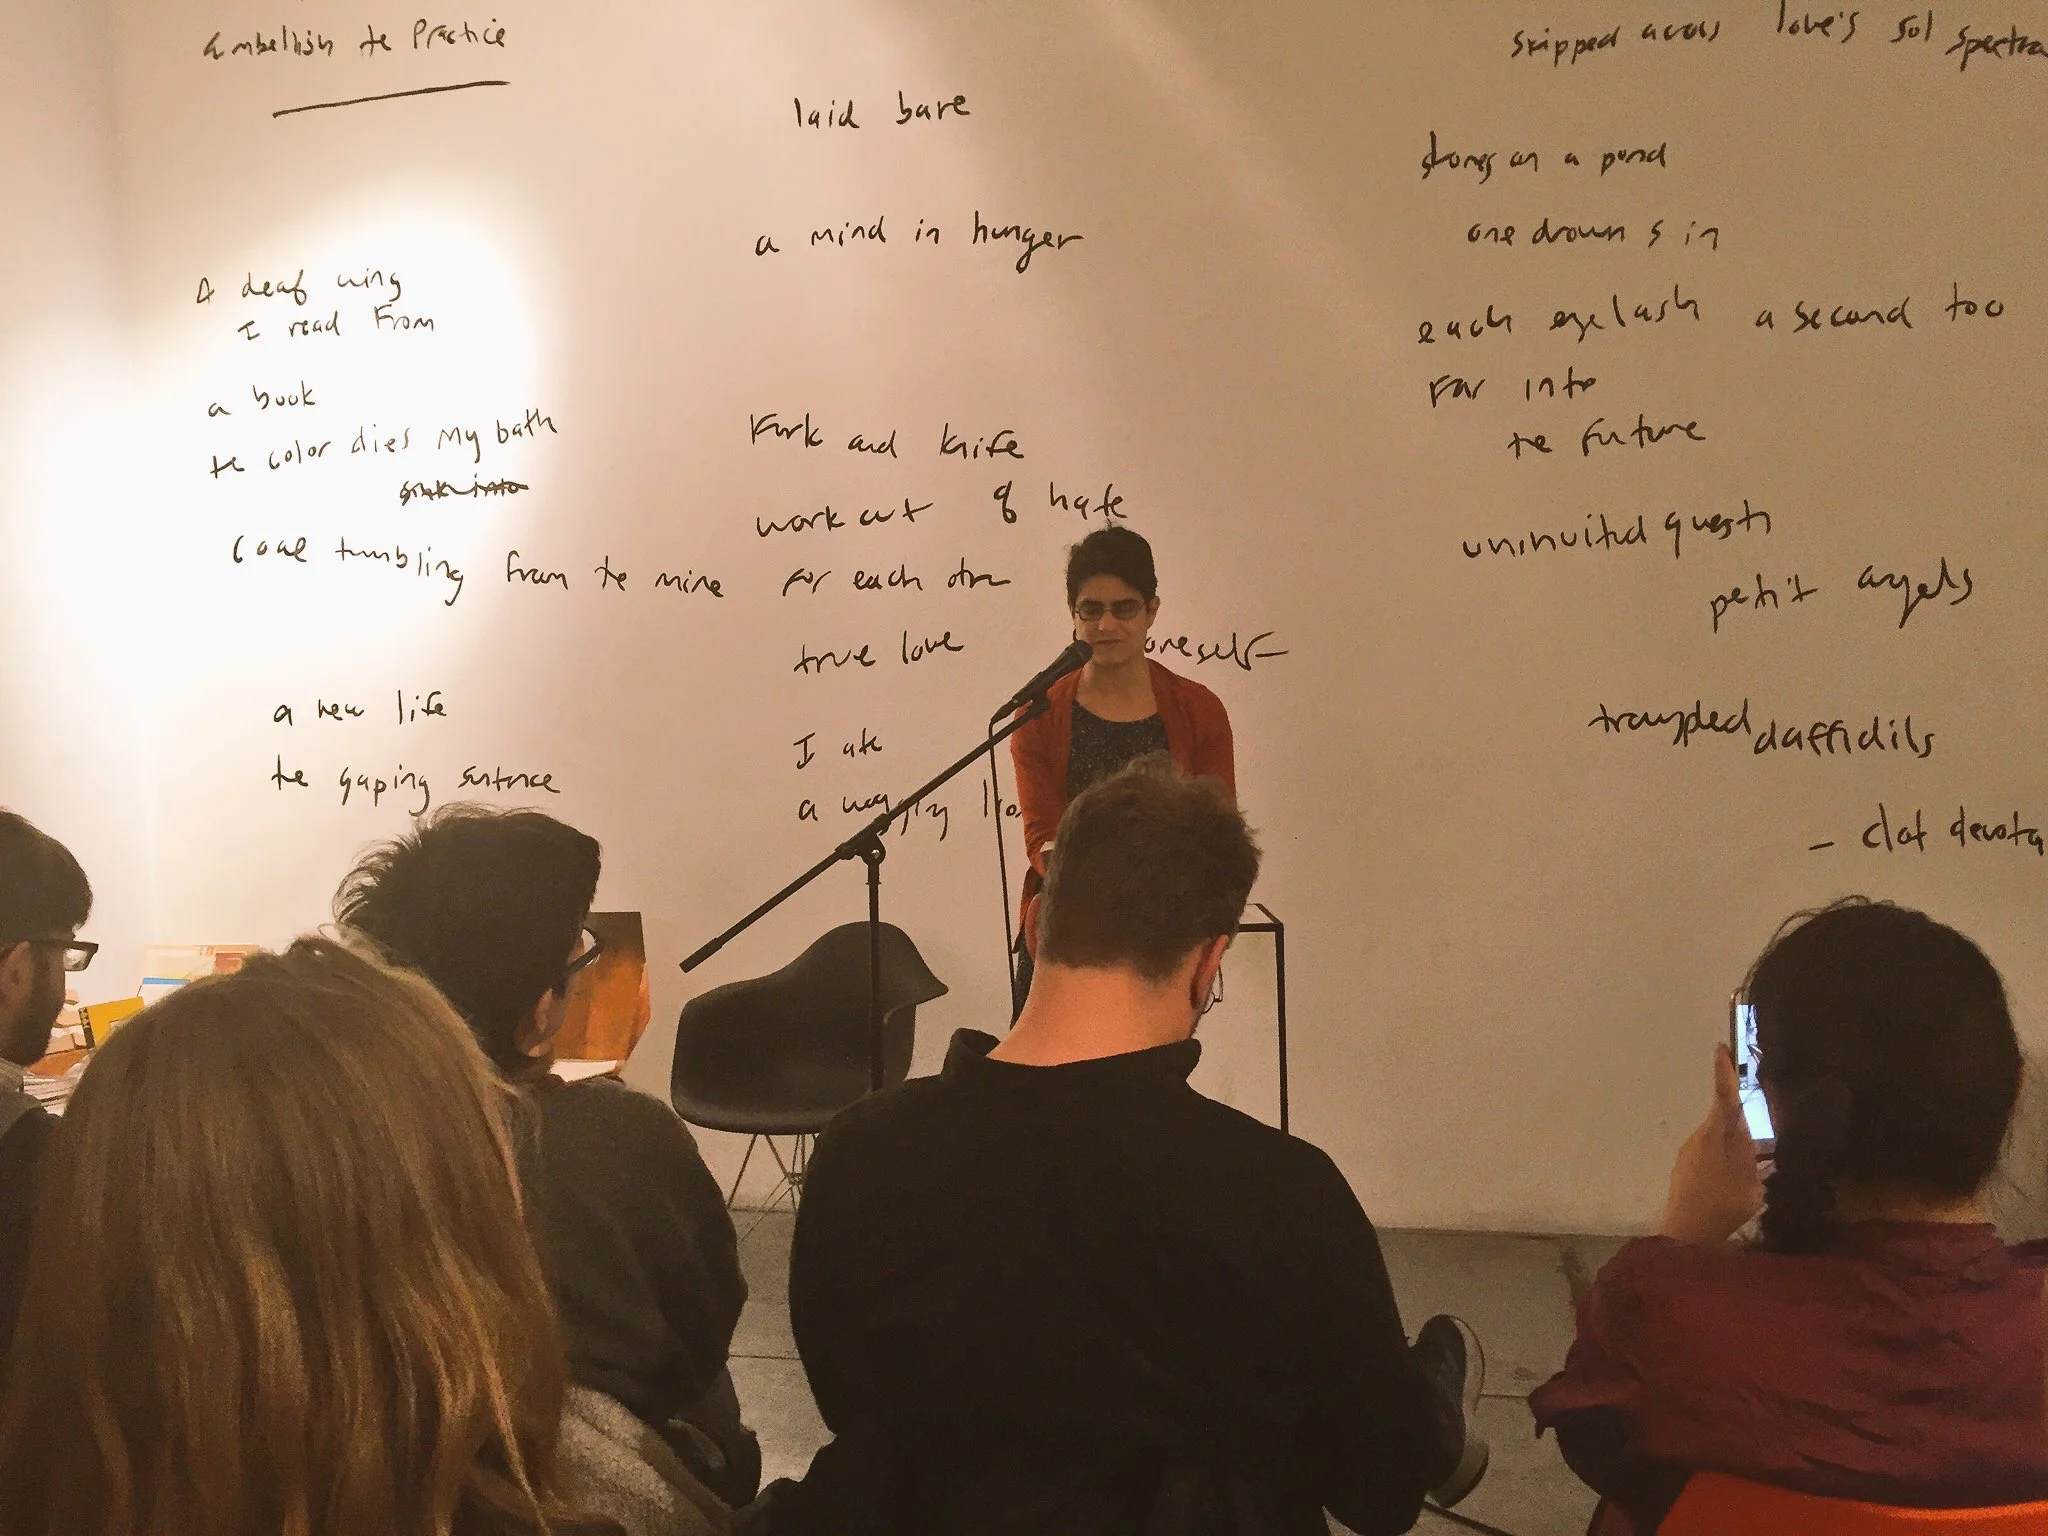 Embellish te Practice
A deaf wing
I read From
a book
te color dies my bath
sink into
Coal tumbling from te mine
a new life
te gaping sentence
laid bare
a mind in hunger
Fork and knife
work out of hate
for each other
true love
oneself
I ate
a
skipped across love's sol spectra
stones on a pond
one drowns in
each eyelash a second too
Far into
te Future
uninvited guests
petit angels
trampled daffidils
- clot devota